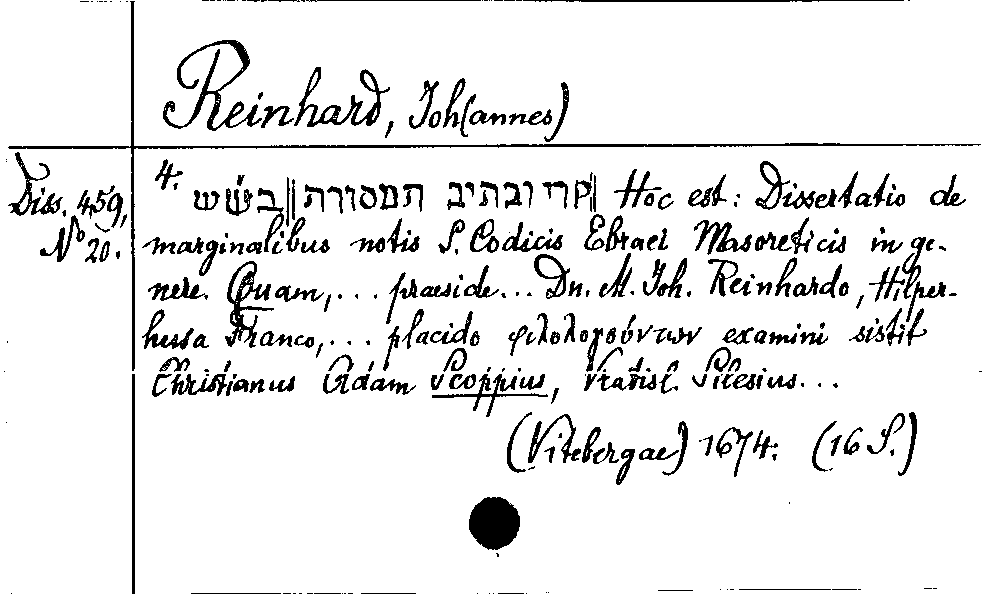 Reinhard, Joh(annes)
Diss. 459,
No 20.
4. בש״ש || קרי וכתיב תמסורת || Hoc est: Dissertatio de
marginalibus notis S. Codicis Ebraei Masoreticis in ge-
nere. Quam,... praeside... Dn. M. Joh. Reinhardo, Hilper-
husa Franco,... placido φιλολογούντων examini sistit
Christianus Adam Scoppius, Vratisl. Silesius...
(Vitebergae) 1674. (16 S.)